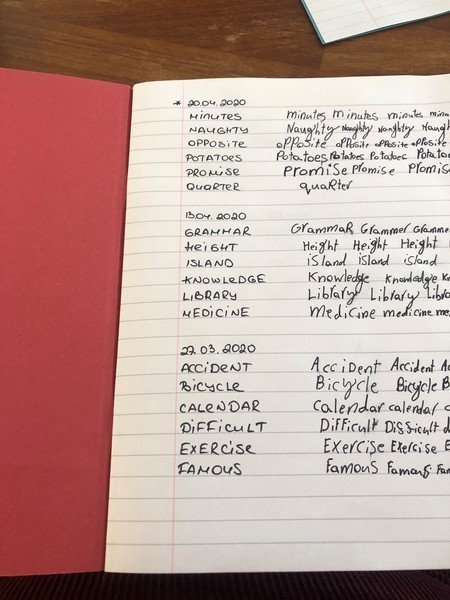 * 20.04.2020
MINUTES minutes Minutes minutes minu
NAUGHTY Naughty Naughty Naughty Naugh
OPPOSITE opposite opposite opposite opposite
POTATOES Potatoes Potatoes Potatoes Potato
PROMISE Promise Promise Promis
QUORTER quarter
13.04.2020
GRAMMAR Grammar Grammer Gramme
HEIGHT Height Height Height
ISLAND island island island
KNOWLEDGE Knowledge Knowledge K
LIBRARY Library Library Libra
MEDICINE Medicine medicine me
27.03.2020
ACCIDENT Accident Accident Ac
BICYCLE Bicycle Bicycle B
CALENDAR Calendar calendar c
DIFFICULT Difficult Difficult d
EXERCISE Exercise Exercise E
FAMOUS Famous Famous Fam